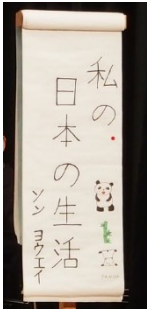 私の
日本の生活
ソン ヨウエイ